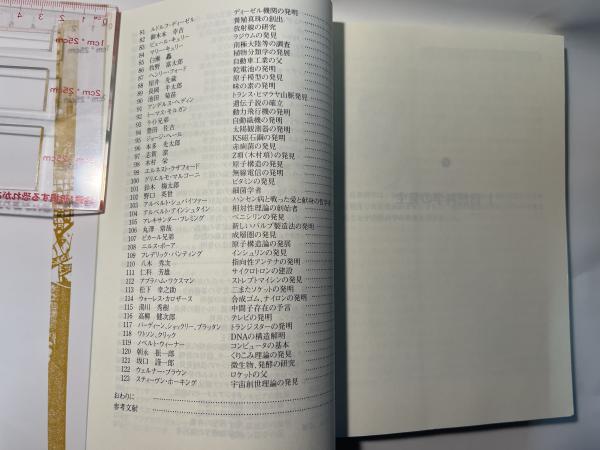 81 ルドルフ・ディーゼル ディーゼル機関の発明
82 御木本 幸吉 養殖真珠の創出
83 ピエール・キュリー 放射線の研究
84 マリー・キュリー ラジウムの発見
85 白瀬 矗 南極大陸等の調査
86 牧野 富太郎 植物分類学の発展
87 ヘンリー・フォード 自動車工業の父
88 屋井 先蔵 乾電池の発明
89 長岡 半太郎 原子模型の発見
90 池田 菊苗 味の素の発明
91 アンデルス・ヘディン トランス・ヒマラヤ山脈発見
92 トーマス・モルガン 遺伝子説の確立
93 ライト兄弟 動力飛行機の発明
94 豊田 佐吉 自動織機の発明
95 ジョージ・ヘール 太陽観測器の発明
96 本多 光太郎 KS磁石鋼の発明
97 志賀 潔 赤痢菌の発見
98 木村 栄 Z項(木村項)の発見
99 エルネスト・ラザフォード 原子構造の発見
100 グリエルモ・マルコーニ 無線電信の発明
101 鈴木 梅太郎 ビタミンの発見
102 野口 英世 細菌学者
103 アルベルト・シュバイツァー ハンセン病と戦った愛と献身の哲学者
104 アルベルト・アインシュタイン 相対性理論の創始者
105 アレキサンダー・フレミング ペニシリンの発見
106 丸澤 常哉 新しいパルプ製造法の発明
107 ピカール兄弟 成層圏の発見
108 ニルス・ボーア 原子構造論の発展
109 フレデリック・バンティング インシュリンの発見
110 八木 秀次 指向性アンテナの発明
111 仁科 芳雄 サイクロトロンの建設
112 アブラハム・ワクスマン ストレプトマイシンの発見
113 松下 幸之助 二またソケットの発明
114 ウォーレス・カロザース 合成ゴム、ナイロンの発明
115 湯川 秀樹 中間子存在の予言
116 高柳 健次郎 テレビの発明
117 バーディーン、ショックリー、ブラッタン トランジスターの発明
118 ワトソン、クリック DNAの構造解明
119 ノベルト・ウィーナー コンピュータの基本
120 朝永 振一郎 くりこみ理論の発見
121 坂口 謹一郎 微生物、発酵の研究
122 ウェルナー・ブラウン ロケットの父
123 スティーヴン・ホーキング 宇宙創世理論の発見
おわりに
参考文献